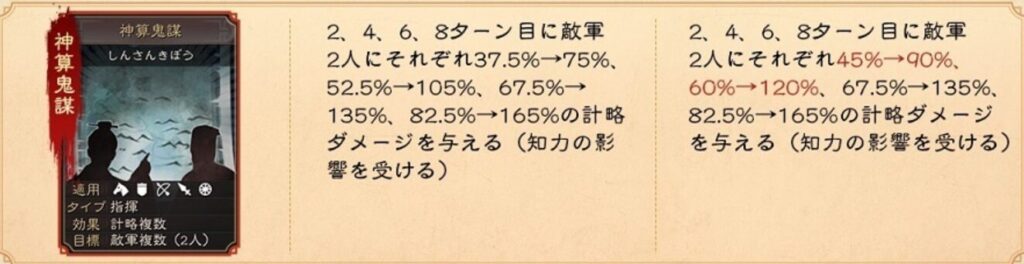 神算鬼謀
神算鬼謀
しんさんきぼう
適用
タイプ 指揮
効果 計略複数
目標 敵軍複数（2人）
2、4、6、8ターン目に敵軍
2人にそれぞれ37.5%→75%、
52.5%→105%、67.5%→
135%、82.5%→165%の計略
ダメージを与える（知力の影
響を受ける）
2、4、6、8ターン目に敵軍
2人にそれぞれ45%→90%、
60%→120%、67.5%→135%、
82.5%→165%の計略ダメージ
を与える（知力の影響を受ける）